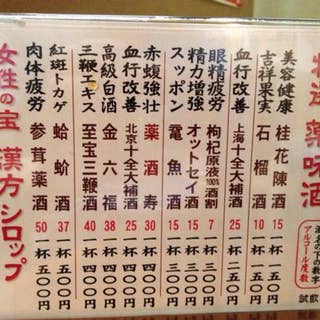 特選 薬味酒
酒名の下の数字
アルコール度数
美容健康 桂花陳酒 15 一杯 三〇〇円
吉祥果実 石榴酒 10 一杯
血行改善 上海十全大補酒 25 一杯 三五〇円
眼精疲労 枸杞原液100%酒割 7 一杯 三〇〇円
精力増強 オットセイ酒 15 一杯
スッポン 鼈魚酒 15 一杯 三〇〇円
赤蝮強壮 薬酒寿 30 一杯 四〇〇円
血行改善 北京十全大補酒 25 一杯 四〇〇円
高級白酒 金六福 38 一杯 四〇〇円
三鞭エキス 至宝三鞭酒 40 一杯 四〇〇円
紅斑トカゲ 蛤蚧酒 37 一杯 五〇〇円
肉体疲労 参茸薬酒 50 一杯 五〇〇円
女性の宝 漢方シロップ
試飲